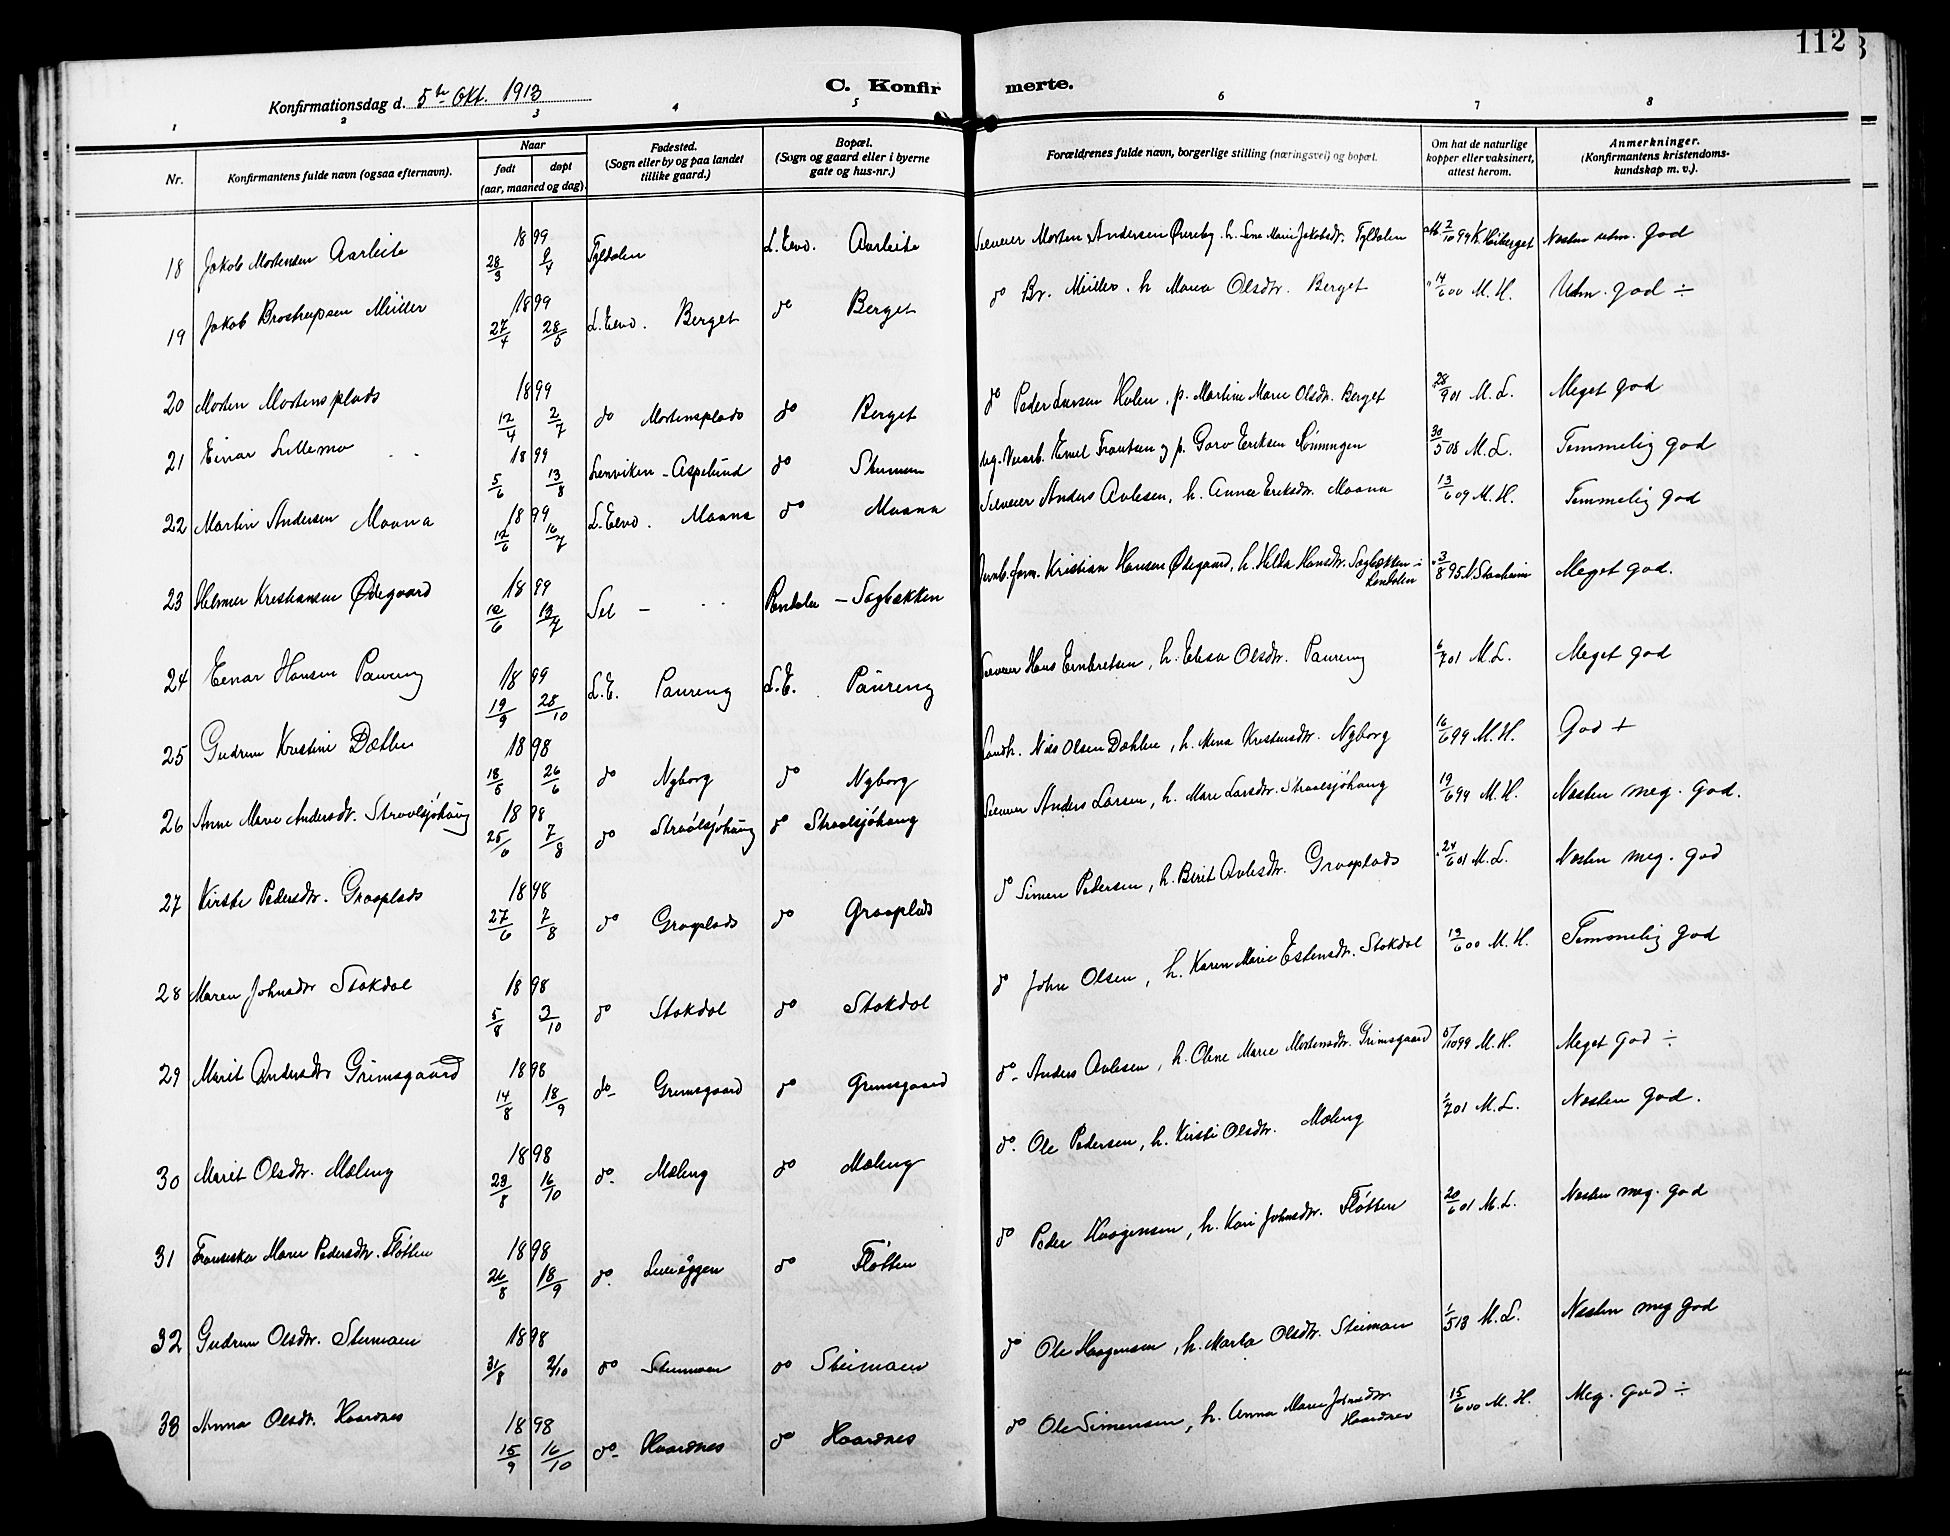 112
Konfirmationsdag d. 5te Okt. 1913
C. Konfirmerte.
1 2 3 4 5 6 7 8
Nr.
Konfirmantens fulde navn (ogsaa efternavn).
Naar
født døpt
(aar, maaned og dag).
Fødested.
(Sogn eller by og paa landet
tillike gaard.)
Bopæl.
(Sogn og gaard eller i byerne
gate og hus-nr.)
Forældrenes fulde navn, borgerlige stilling (næringsvei) og bopæl.
Om hat de naturlige
kopper eller vaksinert,
attest herom.
Anmerkninger.
(Konfirmantens kristendoms-
kundskap m. v.).
18 Jakob Mortensen Aarleite 1899 28/3 9/4 Tyldalen L. Elvd. Aarleite Selveier Morten Andersen Øvreby, h. Lene Marie Jakobsdr. Tyldalen Næsten udm. god
19 Jakob Müller 1899 27/4 28/5 L. Elvd. Berget do Berget do Br. Müller, h. Maria Olsdtr. Berget 14/6 00 M. H. Udm. god ÷
20 Morten Mortensplads 1899 12/4 2/7 do Mortensplads do Berget do Peder Larsen Holen, p. Martine Marie Olsdtr. Berget 28/9 01 M. L. Meget god
21 Einar Lillemo 1899 5/6 13/8 Lenviken - Aspelund do Steimoen ug. Emil Frantsen og p. Goro Eriksen 30/5 08 M. L. Temmelig god
22 Martin Andersen Moana 1899 12/6 16/7 L. Elvd. Moana do Moana Selveier Anders Avlesen, h. Anna Eriksdr. Moana 13/6 09 M. H. Temmelig god
23 Helmer Kristiansen Ødegaard 1899 12/6 13/7 Sel - Rendalen - Sagbakken Jernb.form. Kristian Hansen Ødegaard, h. Hilda Hansdtr. Sagbækken i Rendalen 3/8 95 Meget god.
24 Einar Hansen Paureng 1899 19/9 28/10 L. E. Paureng L. E. Paureng Selveier Hans Embretsen, h. Elisa Olsdtr. Paureng 6/7 01 M. L. Meget god
25 Gudrun Kristine Dæhlie 1898 18/5 26/6 do Nyborg do Nyborg Landh. Nils Olsen Dæhlie, h. Mina Kristensdtr. Nyborg 16/6 99 M. H. God +
26 Anne Marie Andersdtr. Straalsjøhaug 1898 25/6 7/8 do Straalsjøhaug do Straalsjøhaug Selveier Anders Larsen, h. Mari Larsdtr. Straalsjøhaug 19/6 99 M. H. Næsten meg. god.
27 Kirsti Pedersdtr. Graaplads 1898 27/6 7/8 do Graaplads do Graaplads do Simen Pedersen, h. Berit Avlesdtr. Graaplads 24/6 01 M. L. Næsten meg. god
28 Maren Johnsdtr Stokdal 1898 5/8 3/10 do Stokdal do Stokdal do John Olsen, h. Karen Marie Estensdtr. Stokdal 19/6 00 M. H. Temmelig god
29 Marit Andersdtr Grimsgaard 1898 14/8 18/9 do Grimsgaard do Grimsgaard do Anders Avlesen, h. Oline Marie Mortensdtr. Grimsgaard /10 99 M. H. Meget god ÷
30 Marit Olsdtr. Møleng 1898 23/8 16/10 do Møleng do Møleng do. Ole Pedersen, h. Kirsti Olsdtr. Møleng /7 01 M. L. Næsten god.
31 Fransiska Marie Pedersdtr. Fløtten 1898 26/8 18/9 do. do Fløtten do Peder Haagensen, h. Kari Johnsdtr. Fløtten 20/6 01 M. L. Næsten meg. god
32 Gudrun Olsdtr. Steimoen 1898 31/8 2/10 do Steimoen do Steimoen do Ole Haagensen, h. Marta Olsdtr. Steimoen 1/5 13 M. L. Næsten meg god
33 Anna Olsdtr. Haardnes 1898 15/9 16/10 do Haardnes do Haardnes do Ole Simensen, h. Anna Marie Johnsdtr. Haardnes 15/6 00 M. H. Meg. god ÷